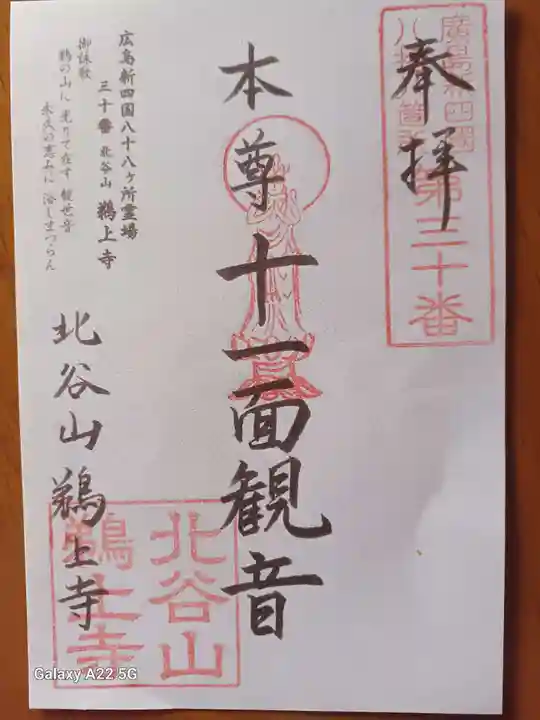 奉拝
廣島新四國
八十八箇所
第三十番
本尊十一面観音
広島新四国八十八ヶ所霊場
三十番 北谷山 鵜上寺
御詠歌
鵜の山に 光りて在す 観世音
永久の恵みに 浴しまつらん
北谷山 鵜上寺
北谷山
鵜上寺
Galaxy A22 5G